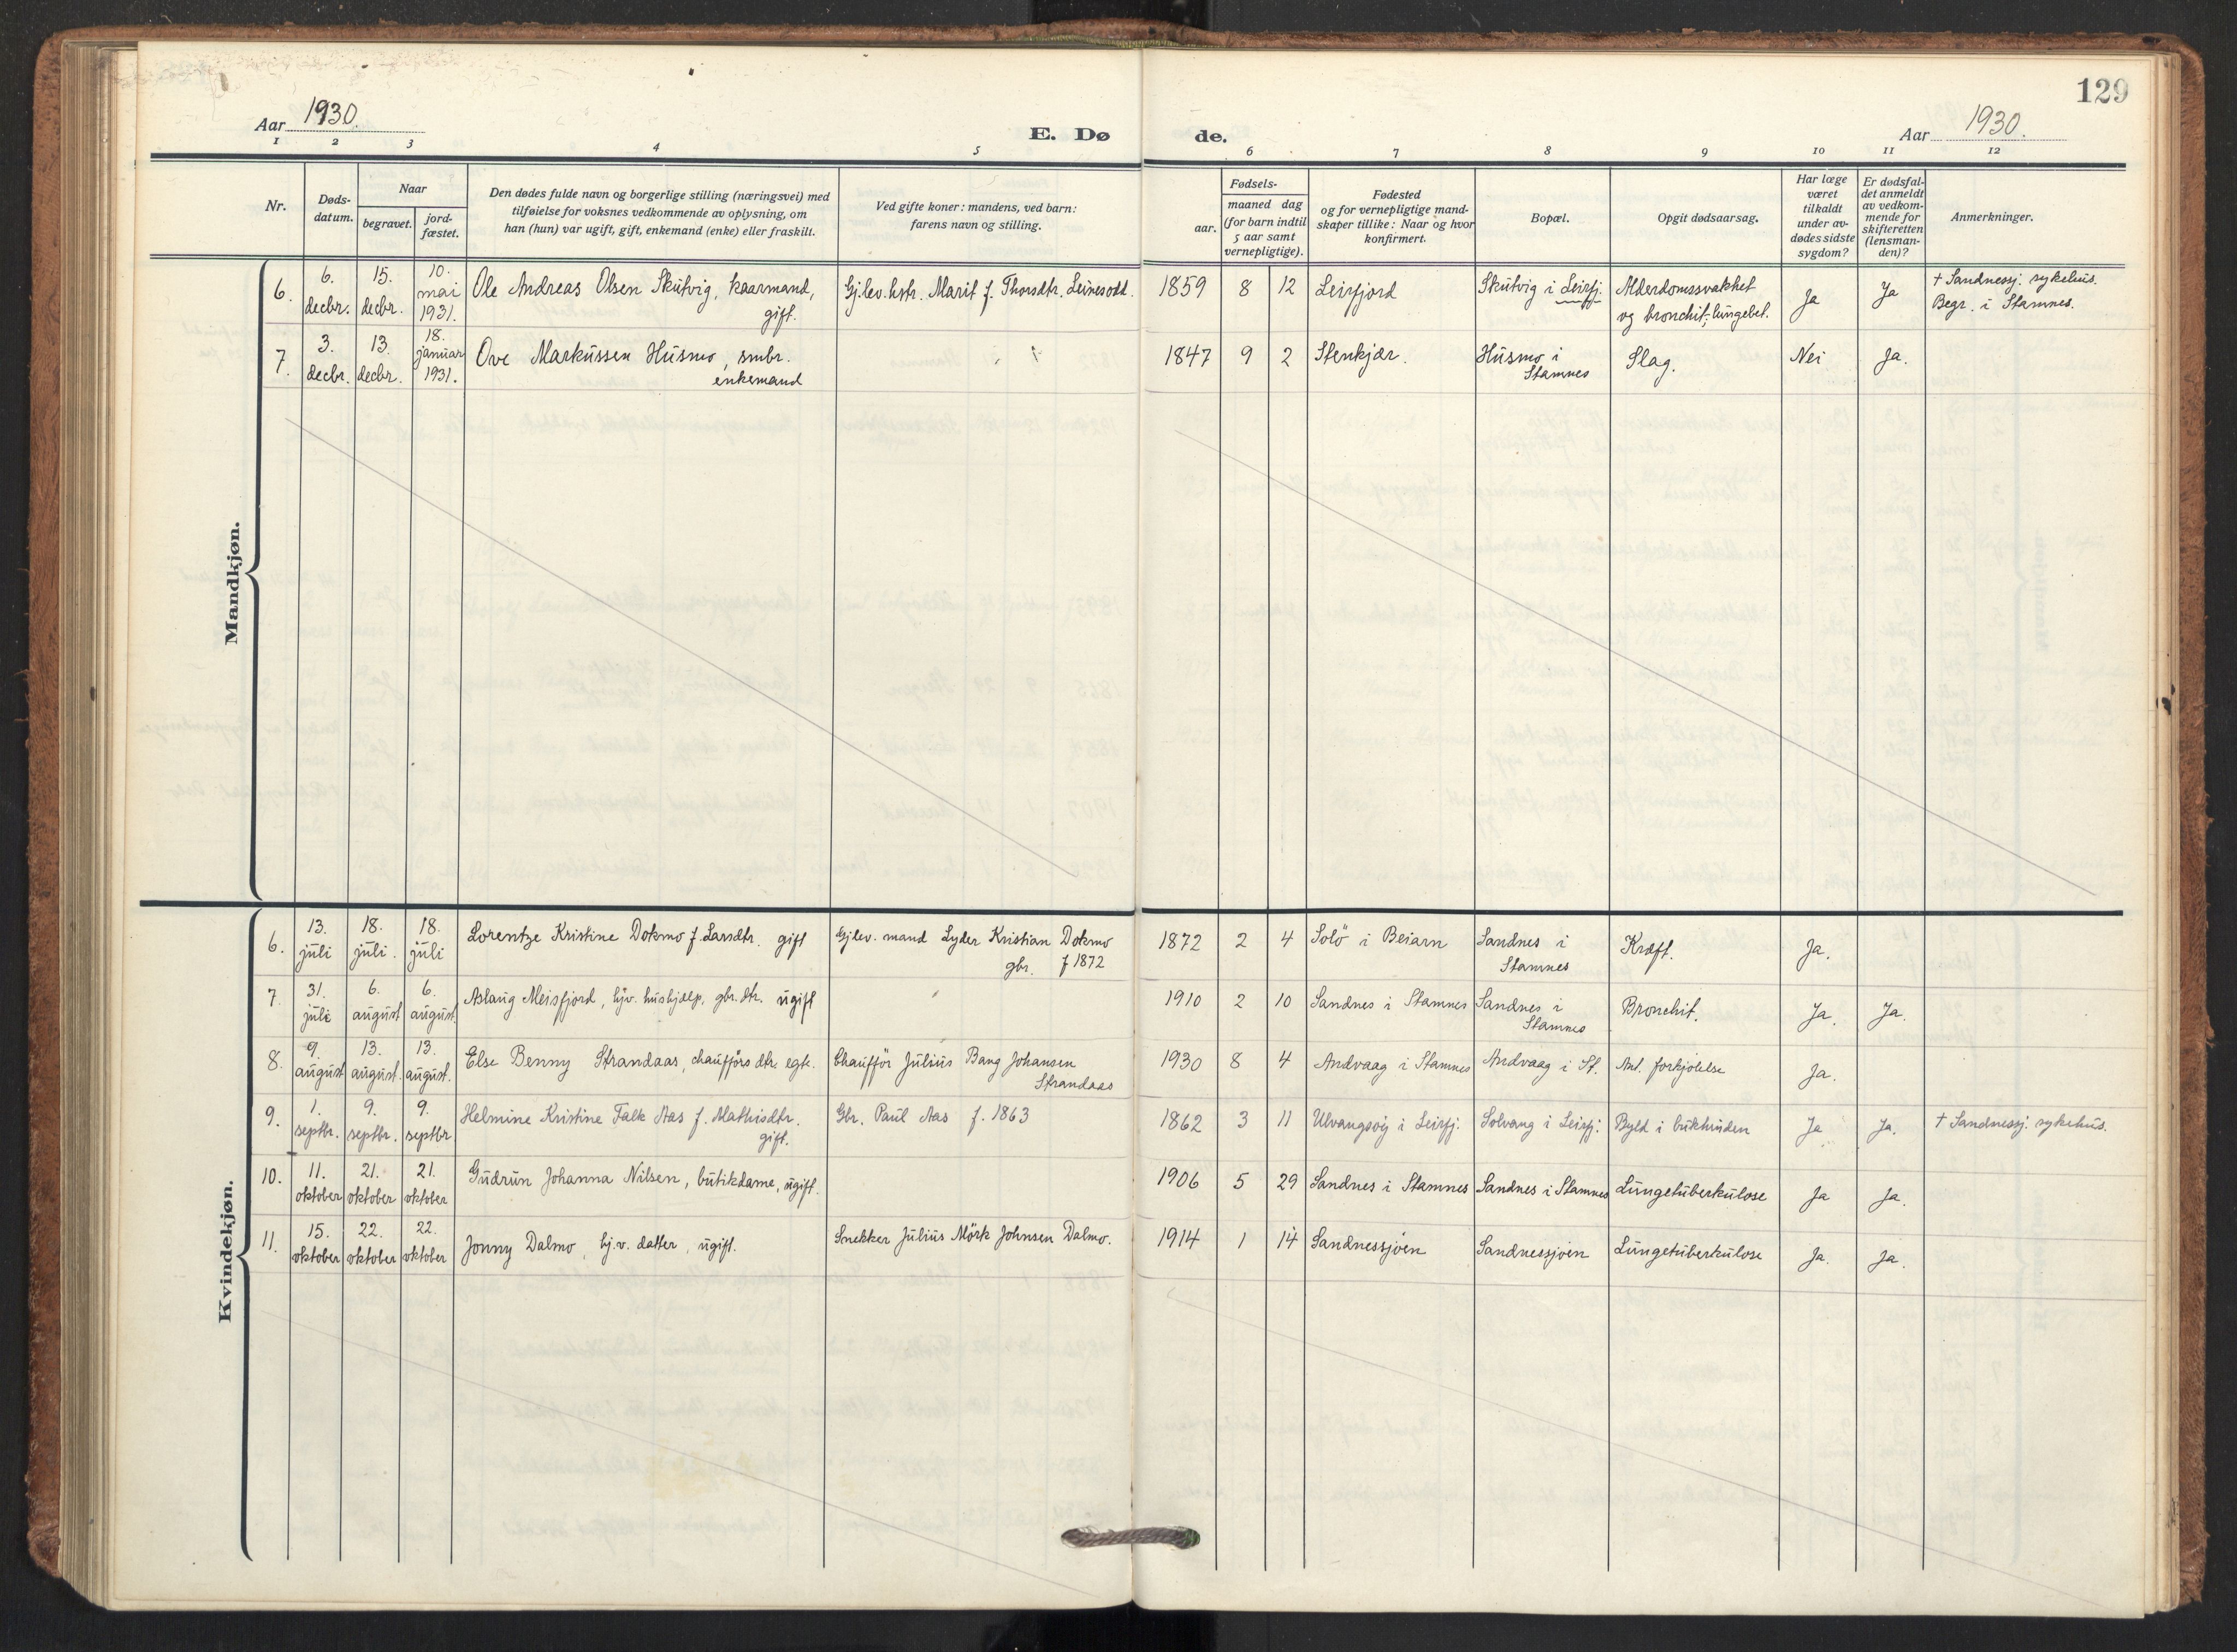 129
Aar 1930.
E. Dø de.
Aar 1930.
1 2 3 4 5 6 7 8 9 10 11 12
Nr.
Døds-
datum.
Naar
begravet.
jord-
fæstet.
Den dødes fulde navn og borgerlige stilling (næringsvei) med
tilføielse for voksnes vedkommende av oplysning, om
han (hun) var ugift, gift, enkemand (enke) eller fraskilt.
Ved gifte koner: mandens, ved barn:
farens navn og stilling.
Fødsels-
aar.
maaned dag
(for barn indtil
5 aar samt
vernepligtige).
Fødested
og for vernepligtige mand-
skaper tillike: Naar og hvor
konfirmert.
Bopæl.
Opgit dødsaarsag.
Har læge
været
tilkaldt
under av-
dødes sidste
sygdom?
Er dødsfal-
det anmeldt
av vedkom-
mende for
skifteretten
(lensman-
den)?
Anmerkninger.
Mandkjøn.
6. 6. decbr. 15. decbr. 10. mai 1931. Ole Andreas Olsen Skutvig, kaarmand,
gift.
Gj.lev. hstr. Marit f. Thorsdtr. Leinesodd.
1859 8 12 Leirfjord Skutvig i Leirfj. Alderdomssvakhet
og bronchit; lungebet.
Ja Ja
+ Sandnessj. sykehus.
Begr. i Stamnes.
7. 3. decbr. 13. decbr. 18. januar 1931. Ove Markussen Husmo, smbr.
enkemand
1847 9 2 Stenkjær. Husmo i
Stamnes
Slag. Nei Ja.
Kvindekjøn.
6. 13. juli 18. juli. 18. juli Lorentze Kristine Dokmo f. Larsdtr. gift
Gjlev. mand Lyder Kristian Dokmo
gbr. f 1872
1872 2 4 Solö i Beiarn Sandnes i
Stamnes
Kræft. Ja.
7. 31. juli 6. august 6. august. Aslaug Meisfjord, hjv. hushjælp, gbr. dtr. ugift
1910 2 10 Sandnes i Stamnes Sandnes i
Stamnes
Bronchit. Ja. Ja.
8. 9. august 13. august. 13. august. Else Benny Strandaas, chauffjørs dtr. egte.
Chaufför Julius Bang Johansen
Strandaas
1930 8 4 Andvaag i Stamnes Andvaag i St. Ant. forkjølelse Ja.
9. 1. septbr. 9. septbr. 9. septbr Helmine Kristine Falk Aas f. Mathisdtr.
gift.
Gbr. Paul Aas f. 1863
1862 3 11 Ulvangsöy i Leirfj. Solvang i Leirfj. Byld i bukhinden Ja Ja. + Sandnessj. sykehus.
10. 11. oktober 21. oktober 21. oktober Gudrun Johanna Nilsen, butikdame, ugift.
1906 5 29 Sandnes i Stamnes Sandnes i Stamnes Lungetuberkulose Ja Ja.
11. 15. oktober 22. oktober 22. oktober Jonny Dalmo, hj.v. datter, ugift.
Snekker Julius Mörk Johnsen Dalmo.
1914 1 14 Sandnessjøen Sandnessjøen Lungetuberkulose Ja. Ja.